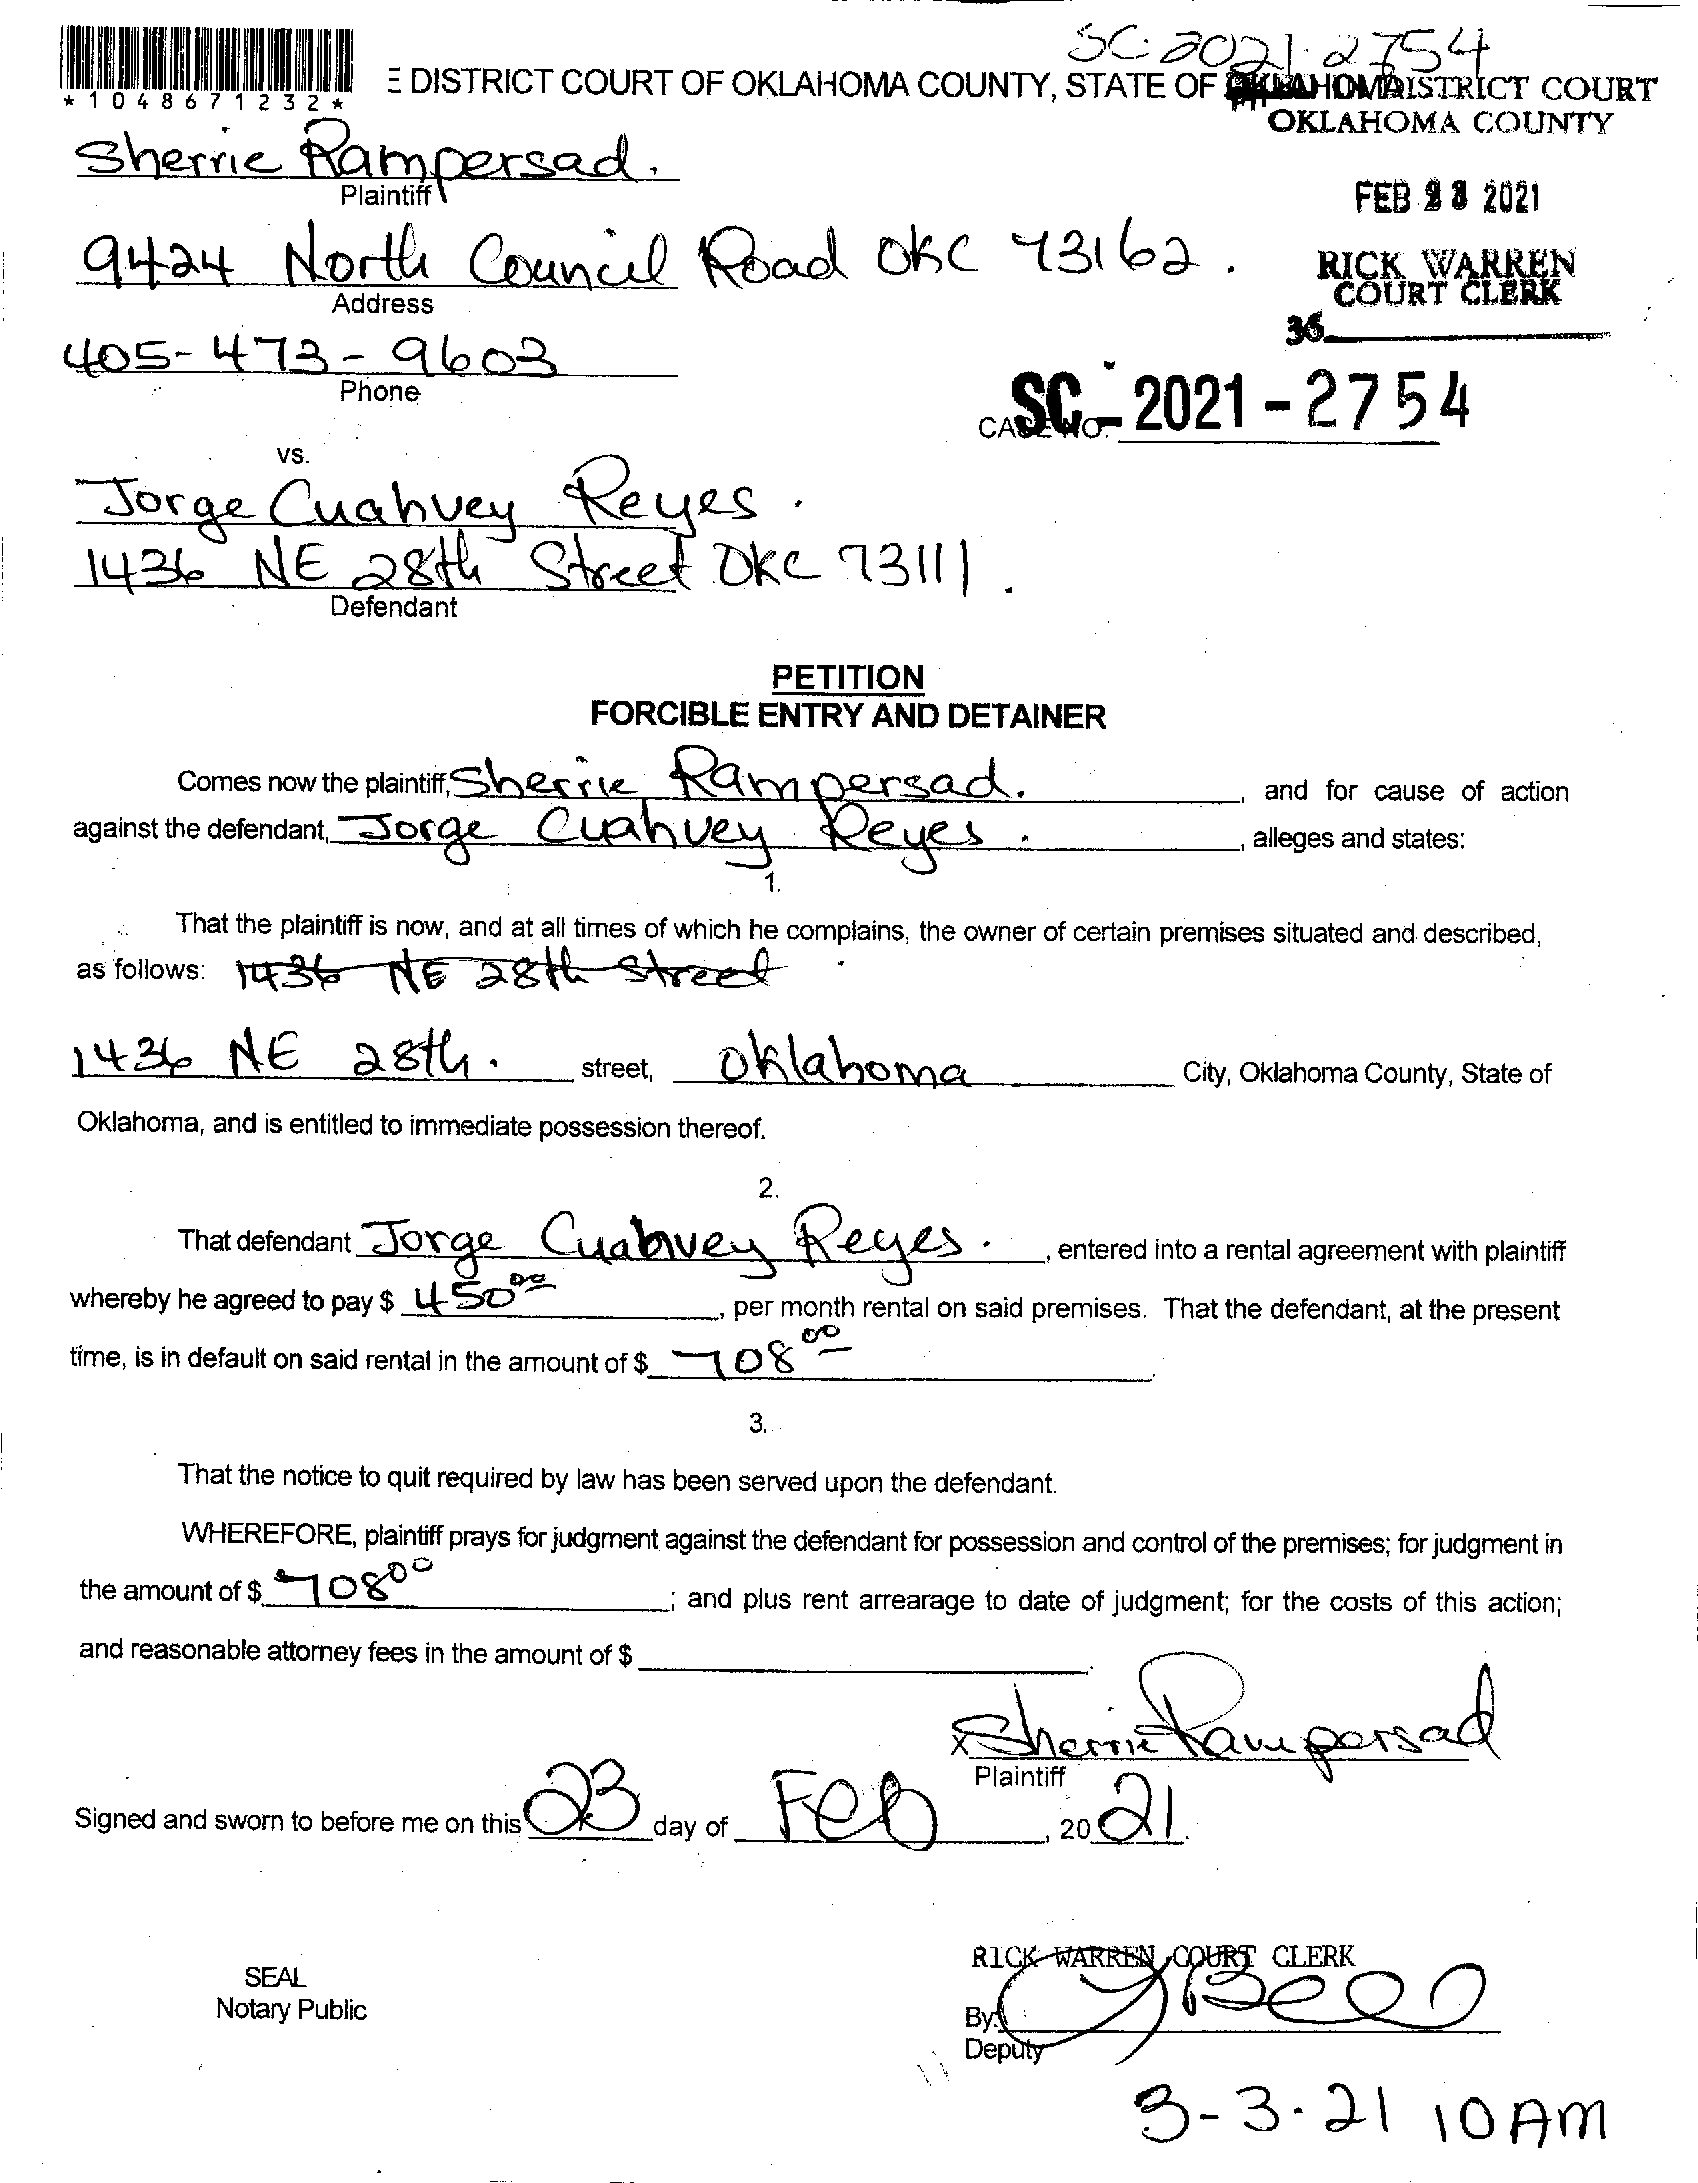 SC-2021-2754
*1048671232*
E DISTRICT COURT OF OKLAHOMA COUNTY, STATE OF OKLAHOMA
DISTRICT COURT
OKLAHOMA COUNTY
Sherrie Rampersad.
Plaintiff
FEB 23 2021
9424 North Council Road OKC 73162.
Address
RICK WARREN
COURT CLERK
36
405-473-9603
Phone
CASE NO. SC-2021-2754
vs.
Jorge Cuahuey Reyes.
1436 NE 28th Street OKC 73111.
Defendant
PETITION
FORCIBLE ENTRY AND DETAINER
Comes now the plaintiff, Sherrie Rampersad. , and for cause of action
against the defendant, Jorge Cuahuey Reyes. , alleges and states:
1.
That the plaintiff is now, and at all times of which he complains, the owner of certain premises situated and described,
as follows: 1436 NE 28th Street
1436 NE 28th. street, Oklahoma City, Oklahoma County, State of
Oklahoma, and is entitled to immediate possession thereof.
2.
That defendant Jorge Cuahuey Reyes. , entered into a rental agreement with plaintiff
whereby he agreed to pay $ 450.00 , per month rental on said premises. That the defendant, at the present
time, is in default on said rental in the amount of $ 708.00 .
3.
That the notice to quit required by law has been served upon the defendant.
WHEREFORE, plaintiff prays for judgment against the defendant for possession and control of the premises; for judgment in
the amount of $ 708 00 ; and plus rent arrearage to date of judgment; for the costs of this action;
and reasonable attorney fees in the amount of $ .
x Sherrie Rampersad
Plaintiff
Signed and sworn to before me on this 23 day of Feb , 20 21.
RICK WARREN COURT CLERK
SEAL
Notary Public
By:
Deputy
3-3-21 10 AM